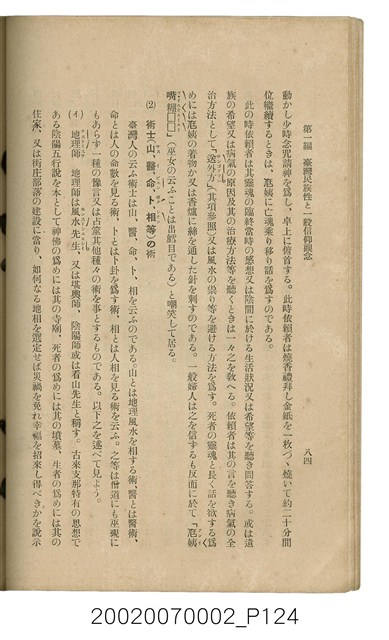 第一編　臺灣民族性と一般信仰觀念
八四
動かし少時念咒請神を爲し、卓上に俯首する。此時依賴者は燒香禮拜し金紙を一枚づゝ燒いて約二十分間
位繼續するときは、尫姨に亡魂乘り移り話を爲すのである。
此の時依賴者は其靈魂の臨終當時の感想又は陰間に於ける生活狀況又は希望等を聽き問答する。或は遺
族の希望又は病氣の原因及其の治療方法等を聽くときは一々之を敎へる。依賴者は其の言を聽き病氣の全
治方法として、「送外方」(其項參照)又は風水の祟り等を避ける方法を爲す。死者の靈魂と長く話を欲する爲
めには尫姨の着物か又は香爐に絲を通した針を刺すのである。一般婦人は之を信ずるも反面に於て「尫姨
嘴糊□□」(巫女の云ふことは出鱈目である)と嘲笑して居る。
(2)　術士(山、醫、命、卜、相等)の術
臺灣人の云ふ術士は山、醫、命、卜、相を云ふのである。山とは地理風水を相する術、醫とは醫術、
命とは人の命數を見る術、卜とは卜卦を爲す術、相とは人相を見る術を云ふ。之等は僧道にも巫覡に
もあらず一種の豫言又は占筮其他種々の術を事とするものである。以下之を述べて見よう。
(イ)　地理師　地理師は風水先生、又は堪輿師、陰陽師或は看山先生と稱す。古來支那特有の思想で
ある陰陽五行說を本として神佛の爲めには其の寺廟、死者の爲めには其の墳墓、生者の爲めには其の
住家、又は街庄部落の建設に當り、如何なる地相を選定せば災禍を免れ幸福を招來し得べきかを說示
20020070002_P124